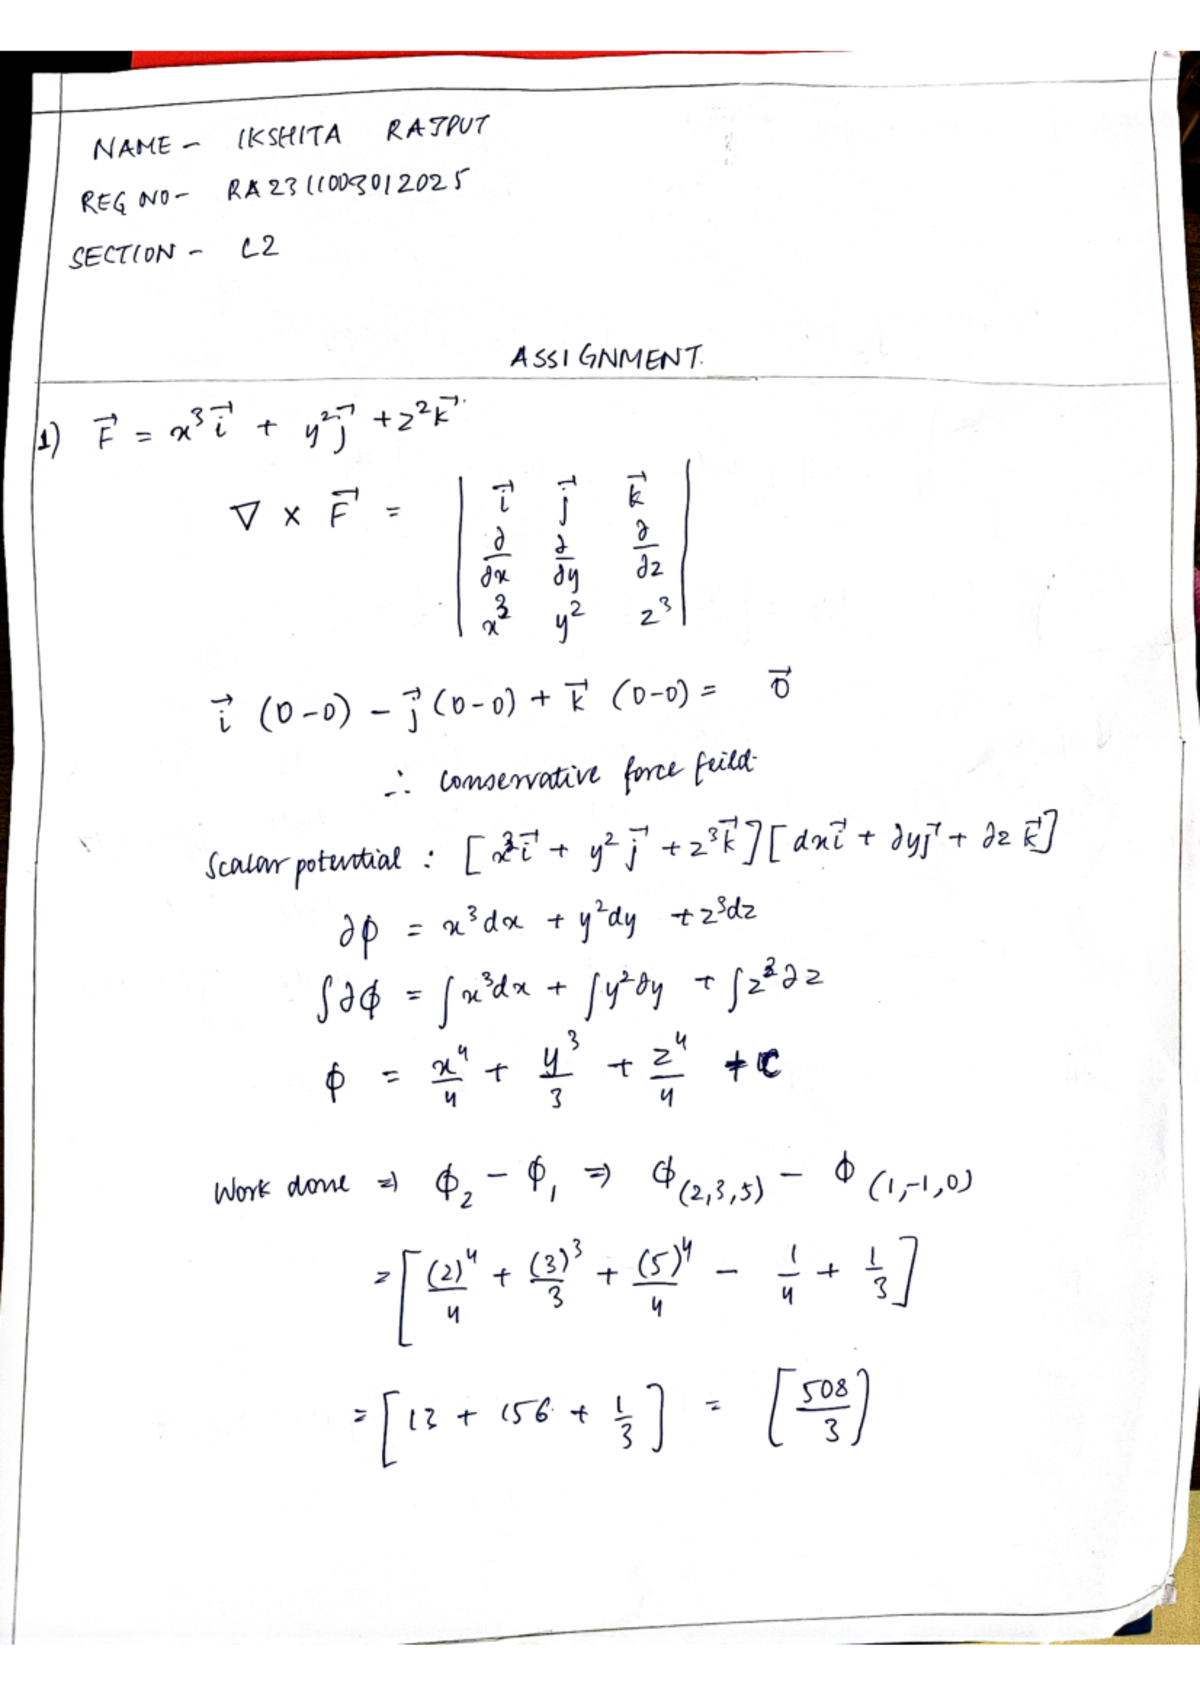 NAME - IKSHITA RAJPUT
REG NO - RA2311003012025
SECTION - L2
ASSIGNMENT.
1) F⃗ = x³ i⃗ + y² j⃗ + z² k⃗.
∇ × F⃗ = | i⃗ j⃗ k⃗ |
| ∂/∂x ∂/∂y ∂/∂z |
| x³ y² z³ |
i⃗ (0-0) - j⃗ (0-0) + k⃗ (0-0) = 0⃗
∴ conservative force feild.
Scalar potential : [x³ i⃗ + y² j⃗ + z³ k⃗] [dx i⃗ + ∂y j⃗ + ∂z k⃗]
∂ϕ = x³dx + y²dy + z³dz
∫∂ϕ = ∫x³dx + ∫y²∂y + ∫z³∂z
ϕ = x⁴/4 + y³/3 + z⁴/4 + C
Work done ⇒ ϕ₂ - ϕ₁ ⇒ ϕ(2,3,5) - ϕ(1,-1,0)
= [(2)⁴/4 + (3)³/3 + (5)⁴/4 - 1/4 + 1/3]
= [13 + 156 + 1/3] = [508/3]